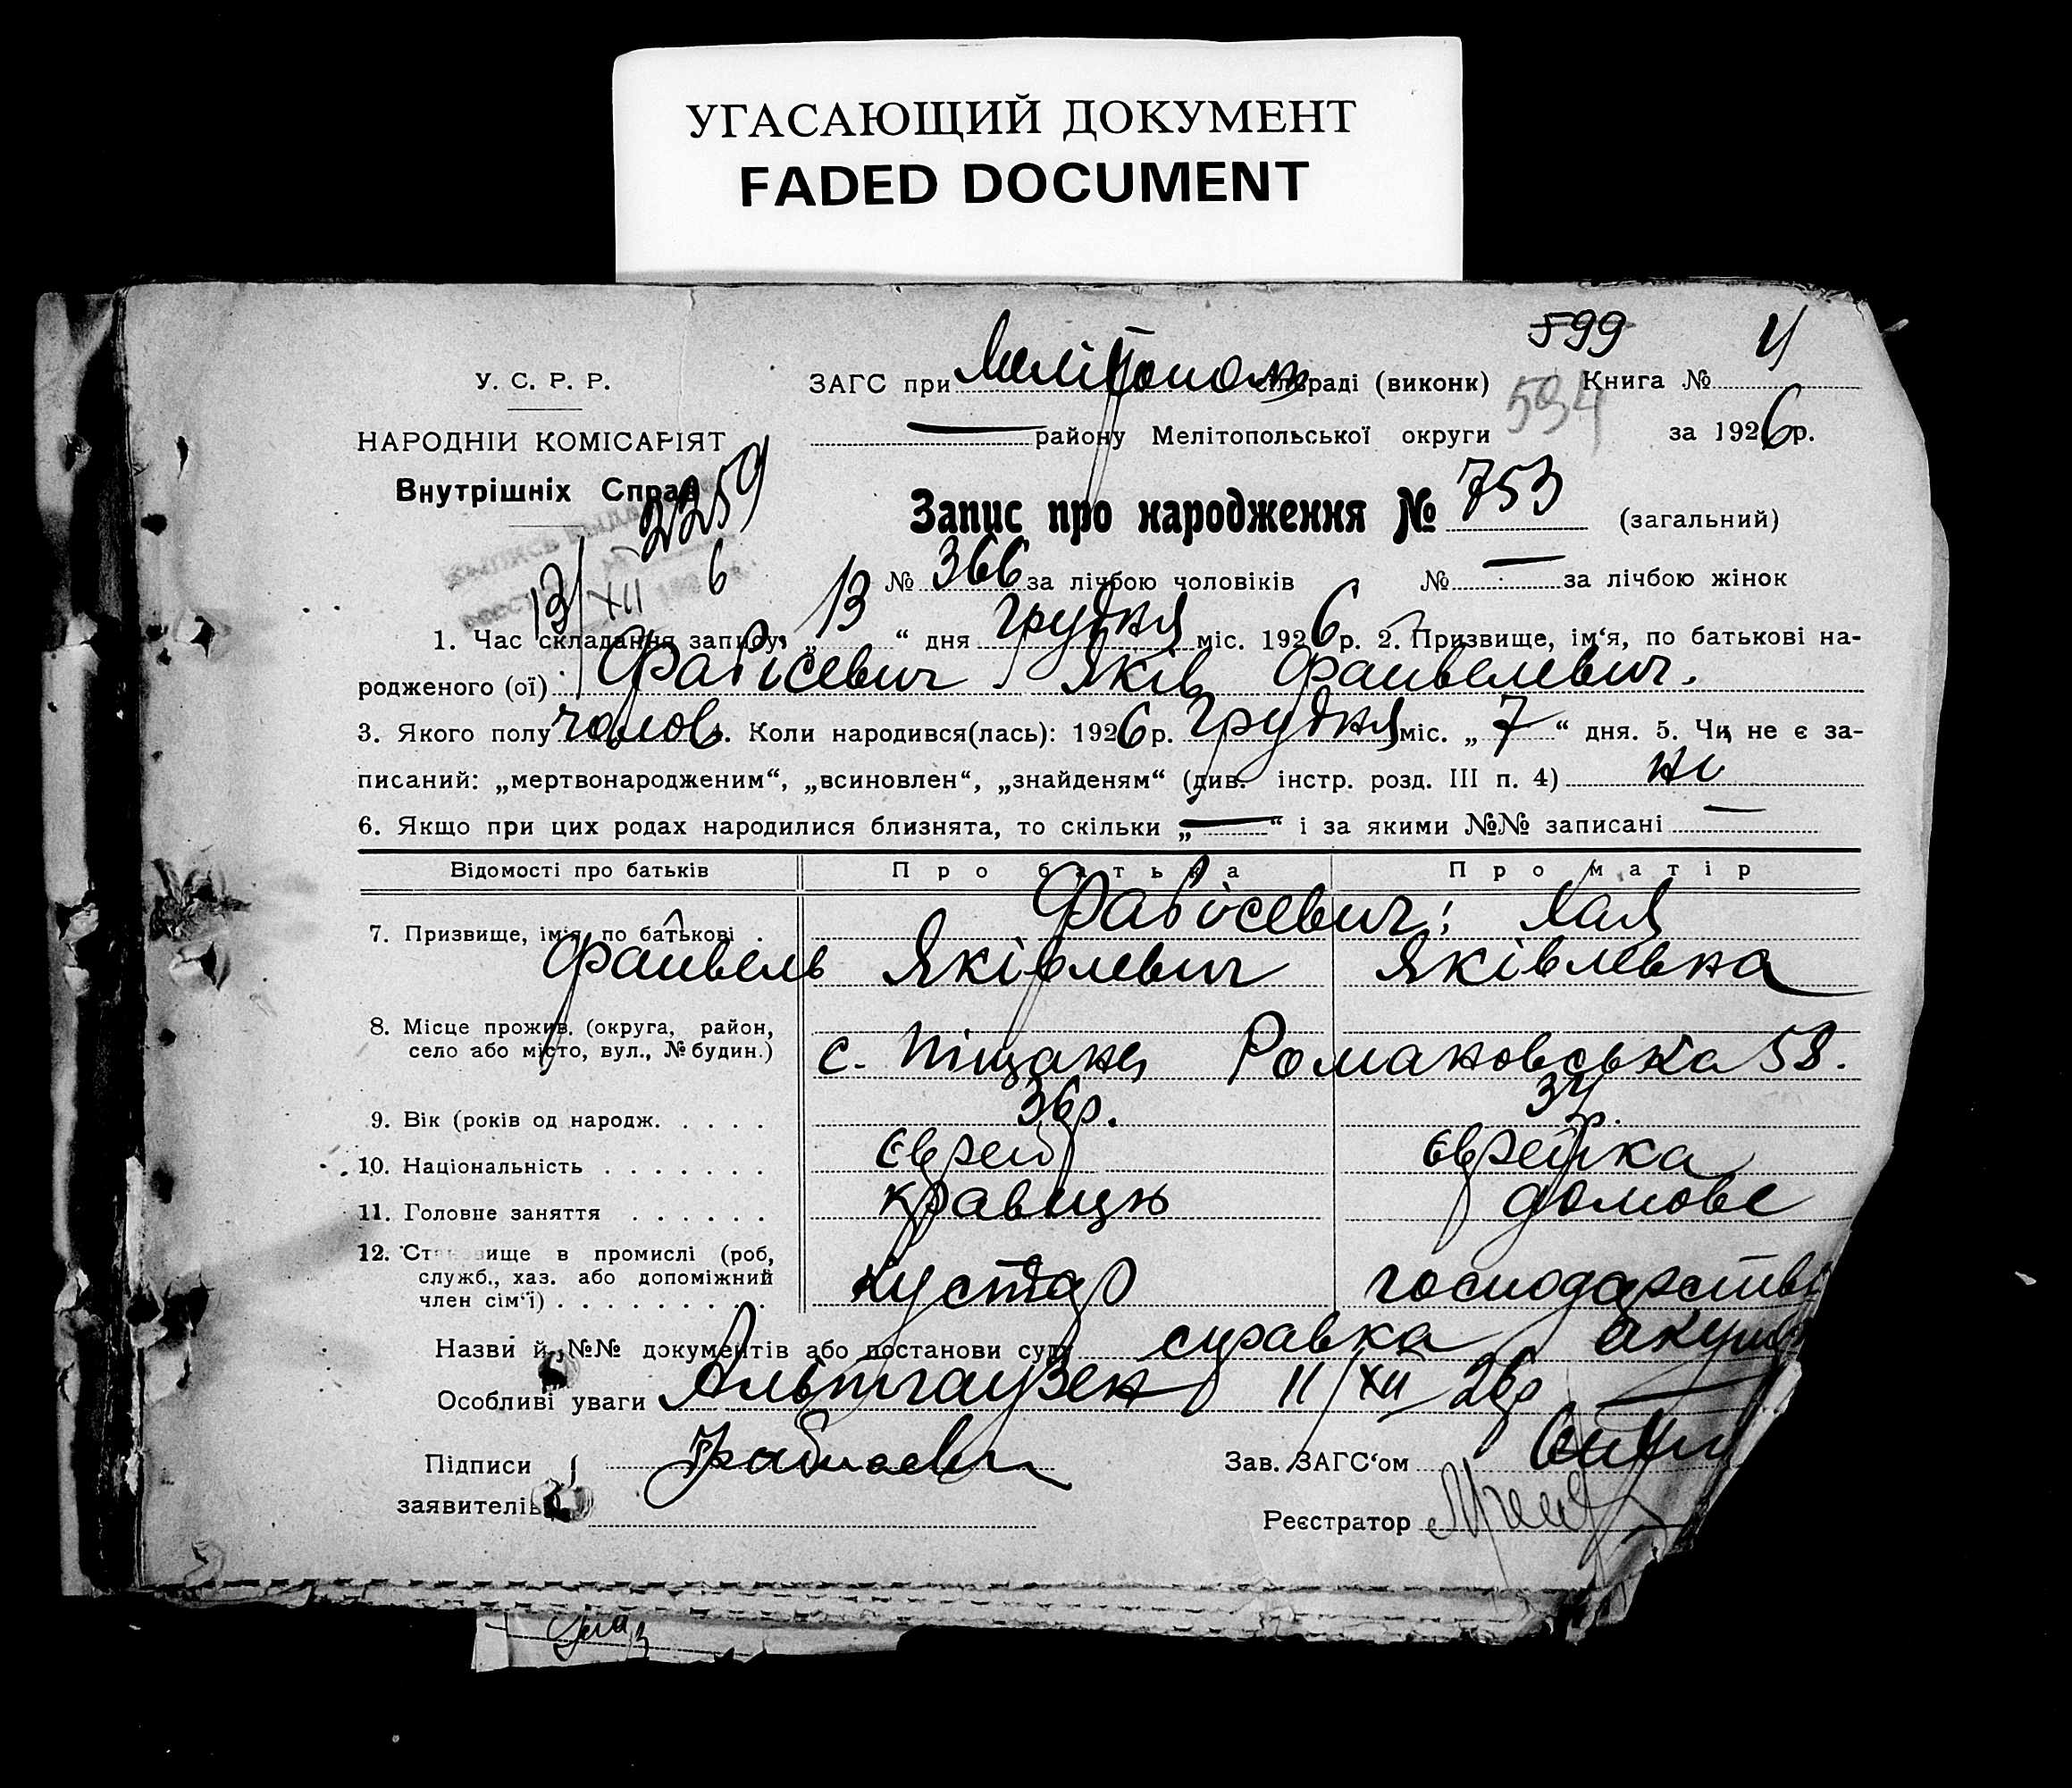 УГАСАЮЩИЙ ДОКУМЕНТ
FADED DOCUMENT
599 4
У. С. Р. Р. ЗАГС при Мелітополь сільраді (виконк) Книга №
594
НАРОДНІЙ КОМІСАРІЯТ района Мелітопольської округи за 1926р.
Внутрішніх Справ 2259
Запис про народження № 753 (загальний)
13/XII 6 № 366 за лічбою чоловіків № — за лічбою жінок
1. Час складання запису „13“ дня грудня міс. 1926р. 2. Призвище, ім‘я, по батькові на-
родженого (ої) Фабісевич Яків Файвелевич.
3. Якого полу чолов. Коли народився(лась): 1926р. грудня міс. „7“ дня. 5. Чи не є за-
писаний: „мертвонародженим“, „всиновлен“, „знайденям“ (див. інстр. розд. III п. 4) ні
6. Якщо при цих родах народилися близнята, то скільки „—“ і за якими №№ записані —
Відомості про батьків Про батька Про матір
Фабісевич: Хая
7. Призвище, ім‘я, по батькові
Файвель Яківлевич Яківлевна
8. Місце прожив. (округа, район,
село або місто, вул., № будин.) с. Піщане Романовська 58.
9. Вік (років од народж. 36р. 34р.
10. Національність Єврей Єврейка
11. Головне заняття кравець домове
12. Становище в промислі (роб,
служб., хаз. або допоміжний кустар господарстві
член сім‘ї)
Назви й №№ документів або постанови суду справка
Особливі уваги Альтгаузен 11/XII 26р
Підписи Зав. ЗАГС‘ом
заявителів
Реєстратор